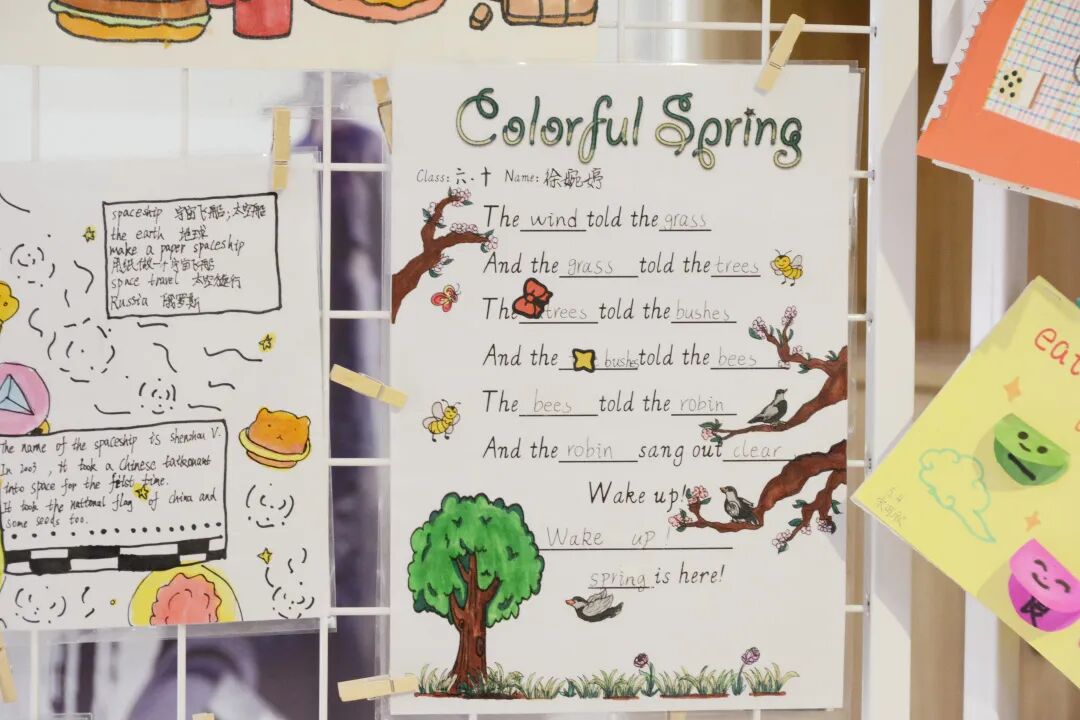 Colorful Spring
Class: 六.十 Name: 徐婉婷
The wind told the grass
And the grass told the trees
The trees told the bushes
And the bushes told the bees
The bees told the robin
And the robin sang out clear
Wake up!
Wake up!
spring is here!
spaceship 宇宙飞船;太空船
the earth 地球
make a paper spaceship
用纸做一个宇宙飞船
space travel 太空旅行
Russia 俄罗斯
The name of the spaceship is shenzhou V.
In 2003, it took a Chinese taikonant
into space for the first time.
It took the national flag of china and
some seeds too.
eat
5.4
艮